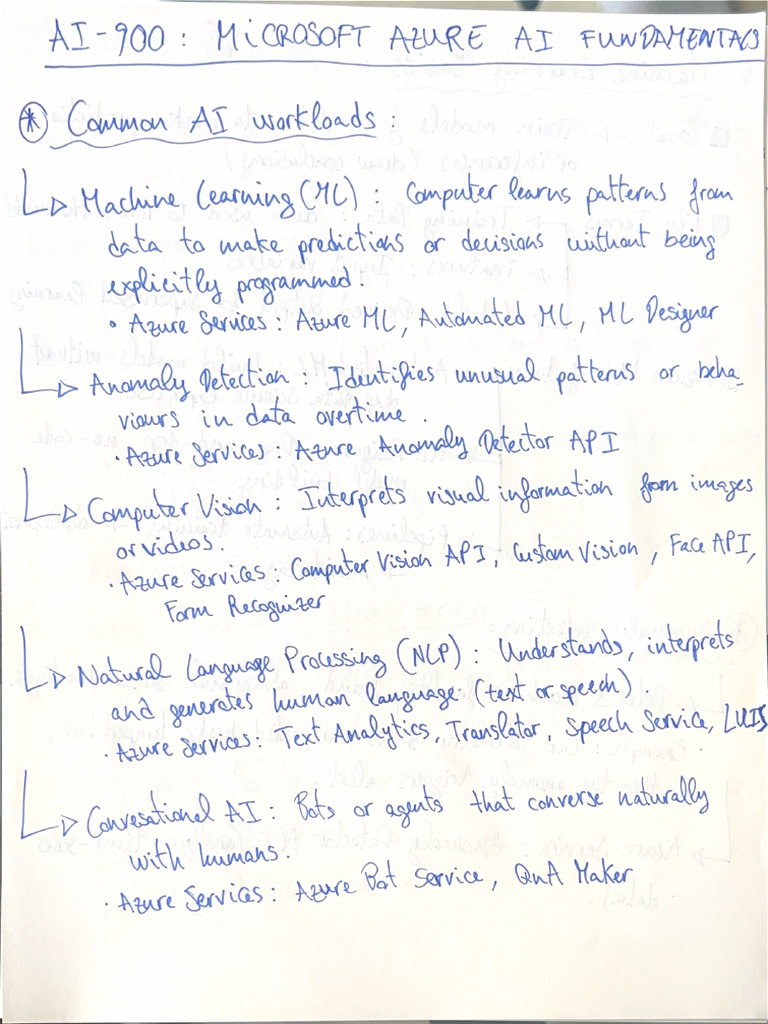 AI-900 : MiCROSOFT AZURE AI FUNDAMENTALS
* Common AI workloads :
Machine Learning (ML) : Computer learns patterns from
data to make predictions or decisions without being
explicitly programmed.
• Azure Services : Azure ML, Automated ML, ML Designer
Anomaly Detection : Identifies unusual patterns or beha-
viours in data overtime.
• Azure Services : Azure Anomaly Detector API
Computer Vision : Interprets visual information from images
or videos.
• Azure Services : Computer Vision API, Custom Vision, Face API,
Form Recognizer
Natural Language Processing (NLP) : Understands, interprets
and generates human language (text or speech).
• Azure Services : Text Analytics, Translator, Speech Service, LUIS
Convesational AI : Bots or agents that converse naturally
with humans.
• Azure Services : Azure Bot Service, QnA Maker